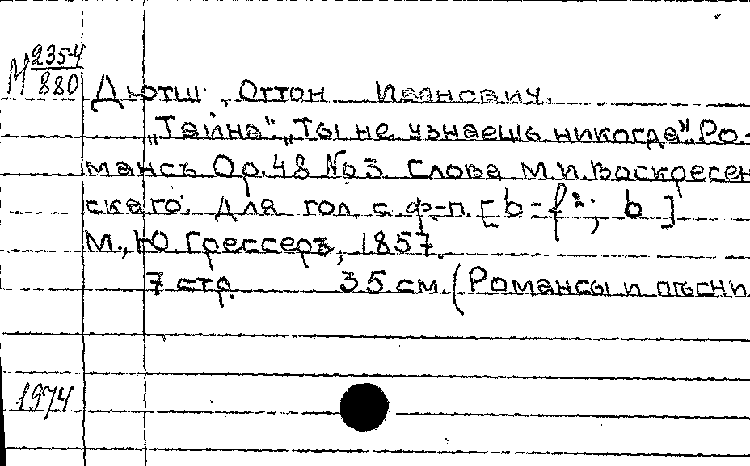 М 2354
880
Дютш, Оттон Иванович.
„Тайна". „Ты не узнаешь никогда". Ро-
мансъ Op. 48 № 3. Слова М.И. Воскресен
скаго. Для гол. с ф-п. [b-f²; b]
М., Ю. Грессеръ, 1857.
7 стр. 35 см. (Романсы и пѣсни
1974